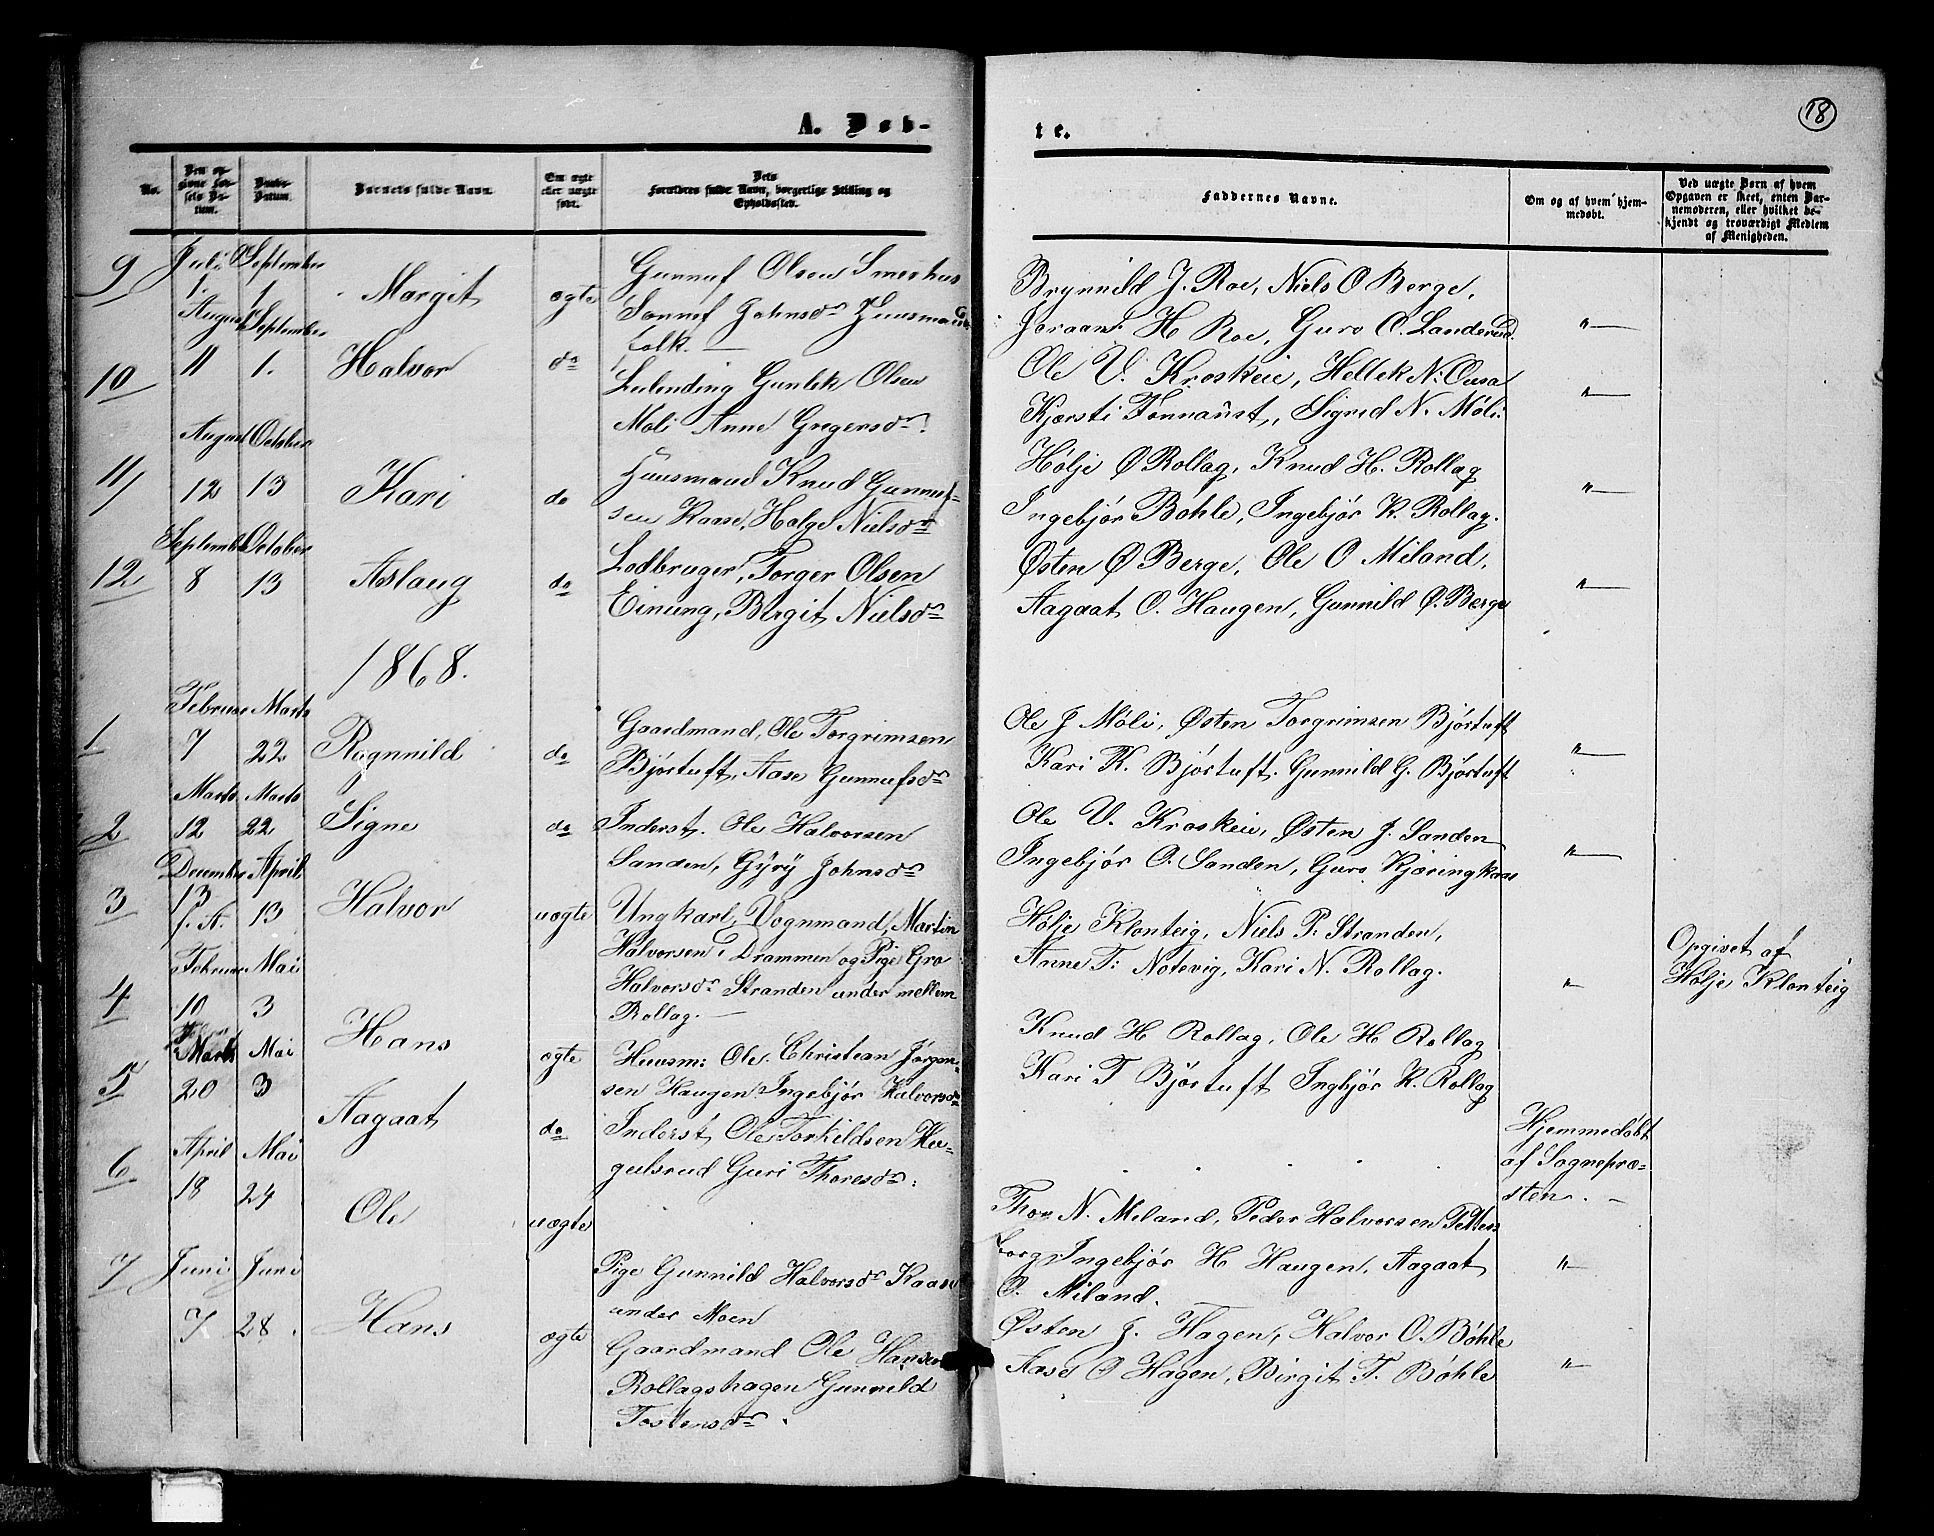 A. Døb-
No.
Den op-
givne Fød-
sels Da-
tum.
Daabs-
Datum.
Barnets fulde Navn.
Om ægte
eller uægte
født.
Dets
Forældres fulde Navn, borgerlige Stilling og
Opholdssted.
9
Juli September
1. 1
Margit
ægte
Gunnuf Olsen
Johnsdr Huusmands
folk.
10
August September
11 1.
Halvor
do
Gunlek Olsen
Møli Anne Gregersdr.
11
August October
12 13
Kari
do
Huusmand Knud Gunnuf-
sen Kaase, Helge Nielsdr
12
September October
8 13
Aslaug
do
Lodbruger, Torger Olsen
Einung, Birgit Nielsdr
1868.
1
Februar Marts
7 22
Rognnild
do
Gaardmand, Ole Torgrimsen
Bjørtuft, Aase Gunnufsdr
2
Marts Marts
12 22
Signe
do
Inderst. Ole Halvorsen
Sanden, Gyrý Johnsdr
3
December April
13 f. A. 13
Halvor
uægte
Ungkarl, Vognmand, Martin
Halvorsen i Drammen og Pige Gro
Halvorsdr Stranden under mellem
Rollag.
4
Februar Mai
10 3
Hans
ægte
Huusm: Ole Christian Jørgen-
sen Haugen Ingebjør Halvorsdr
5
Marts Mai
20 3
Aagaat
do
Inderst, Ole Torkildsen Ha-
gulsrud Guri Thoresdr:
6
April Mai
18 24
Ole
uægte
Pige Gunnild Halvorsdr Kaase
under Moen
7
Juni Juni
7 28.
Hans
ægte
Gaardmand Ole Hansen
Rollagshagen Gunnild
Tostensdr.
18
te.
Faddernes Navne.
Om og af hvem hjem-
medøbt.
Ved uægte Børn af hvem
Opgaven er skeet, enten Bar-
nemoderen, eller hvilket be-
kjendt og troværdigt Medlem
af Menigheden.
Brynnild J. Roe, Niels O Berge,
Joraand H Roe, Guro O. Landerud.
"
Ole V. Kroskeie, Hellek N: Ousa
Kjersti Tønnaust, Sigrid N. Møli.
"
Hølje Ø Rollag, Knud H. Rollag
Ingebjør Bøhle, Ingebjør K. Rollag.
"
Østen Ø Berge, Ole O Miland,
Aagaat O. Haugen, Gunnild Ø. Berge
"
Ole J Møli, Østen Torgrimsen Bjørtuft
Kari K. Bjørtuft. Gunnild G. Bjørtuft
"
Ole V. Kroskeie, Østen J. Sanden
Ingebjør O. Sanden, Guro Kjæringkaas
"
Hølje Klonteig, Niels P. Stranden,
Anne T: Notevig, Kari N. Rollag.
"
Opgivet af
Hølje Klonteig
Knud H Rollag, Ole H Rollag
Kari T Bjørtuft Ingbjør K. Rollag
Hjemmedøbt
af Sognepræ-
sten.
Thor N. Miland, Peder Halvorsen Petters
borg, Ingebjør H Haugen, Aagaat
O. Miland.
"
Østen J. Hagen, Halvor O. Bøhle
Aase O Hagen, Birgit T. Bøhle
"